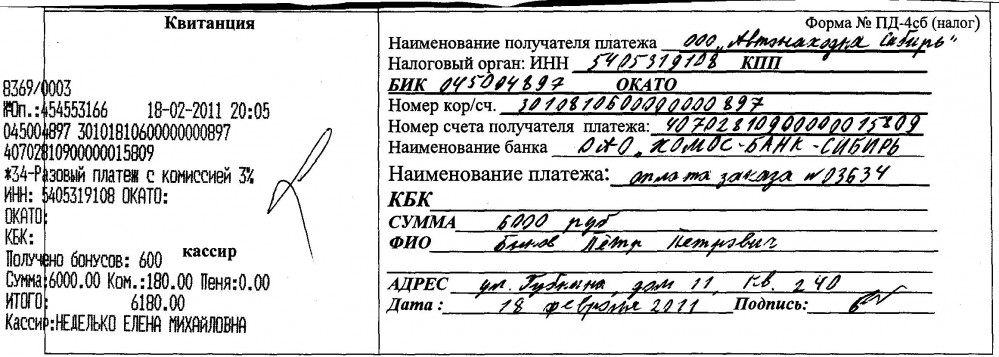 Квитанция
8369/0003
№Оп.:454553166 18-02-2011 20:05
045004897 30101810600000000897
40702810900000015809
*34-Разовый платеж с комиссией 3%
ИНН: 5405319108 ОКАТО:
ОКАТО:
КБК:
кассир
Получено бонусов: 600
Сумма:6000.00 Ком.:180.00 Пеня:0.00
ИТОГО: 6180.00
Кассир:НЕДЕЛЬКО ЕЛЕНА МИХАЙЛОВНА
Форма № ПД-4сб (налог)
Наименование получателя платежа ООО "Автонаходка Сибирь"
Налоговый орган: ИНН 5405319108 КПП
БИК 045004897 ОКАТО
Номер кор/сч. 3010810600000000897
Номер счета получателя платежа: 40702810900000015809
Наименование банка ОАО "НОМОС-БАНК-СИБИРЬ
Наименование платежа: оплата заказа №03634
КБК
СУММА 6000 руб
ФИО Быков Пётр Петрович
АДРЕС ул. Губкина, дом 11, кв. 240
Дата : 18 февраля 2011 Подпись: